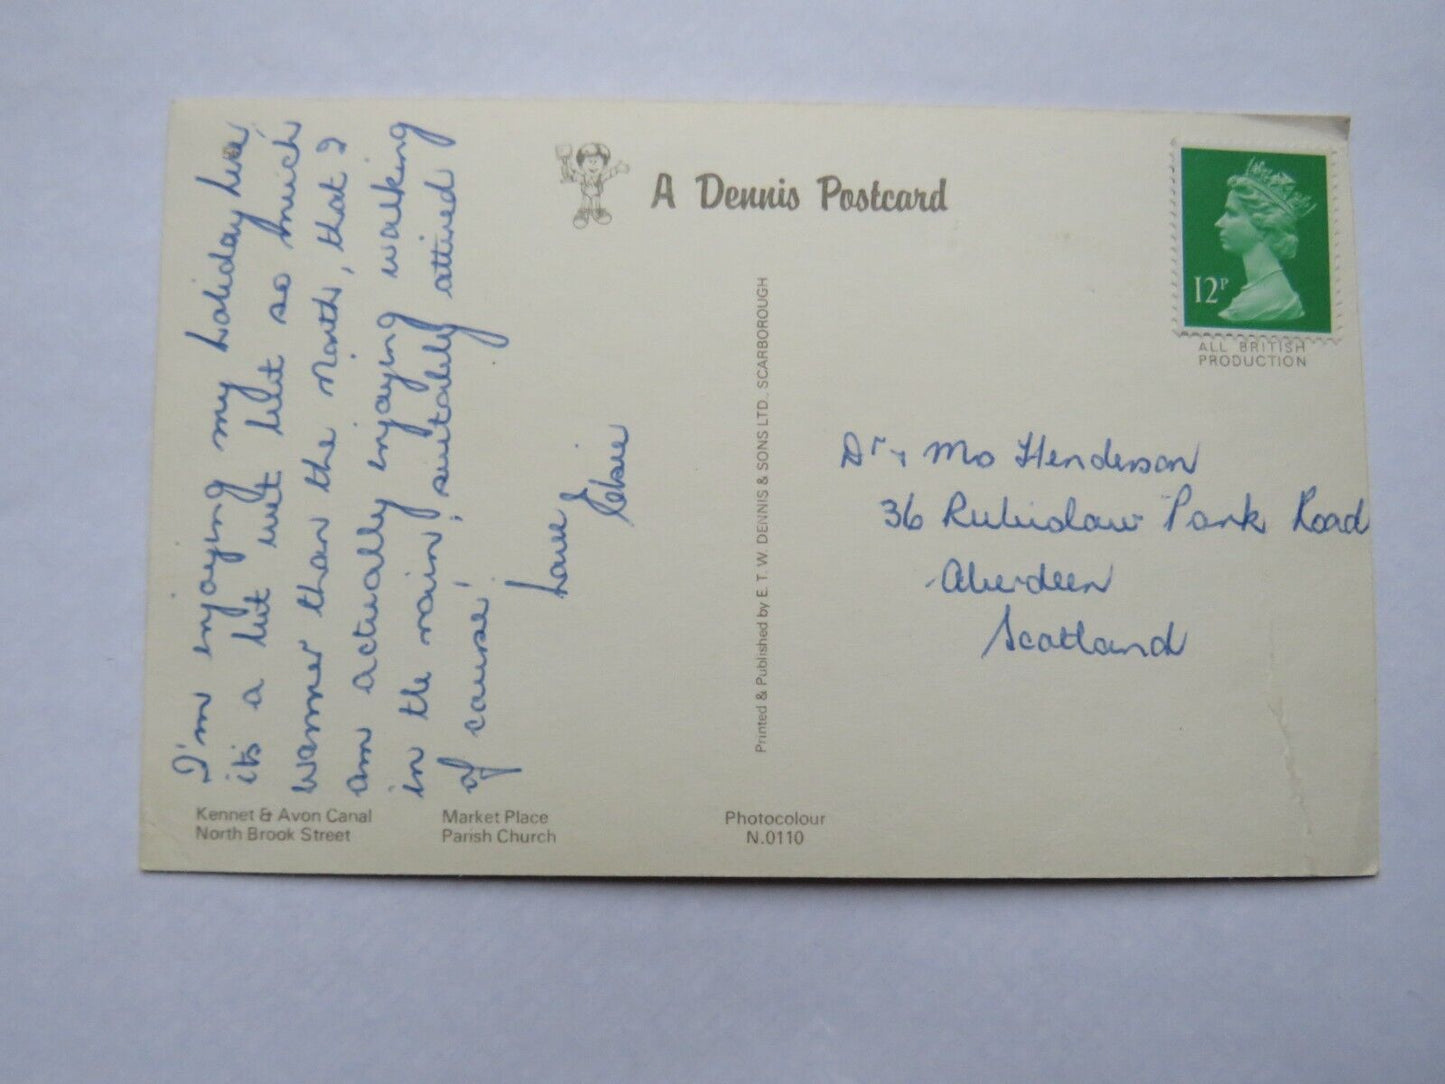 I'm enjoying my holiday here
it's a bit wet but so much
warmer than the North, that I
am actually enjoying walking
in the rain; suitably attired
of course!
Love
Elsie
A Dennis Postcard
12P
ALL BRITISH
PRODUCTION
Dr + Mrs Henderson
36 Rubislaw Park Road
Aberdeen
Scotland
Printed & Published by E. T. W. DENNIS & SONS LTD., SCARBOROUGH
Kennet & Avon Canal
North Brook Street
Market Place
Parish Church
Photocolour
N.0110